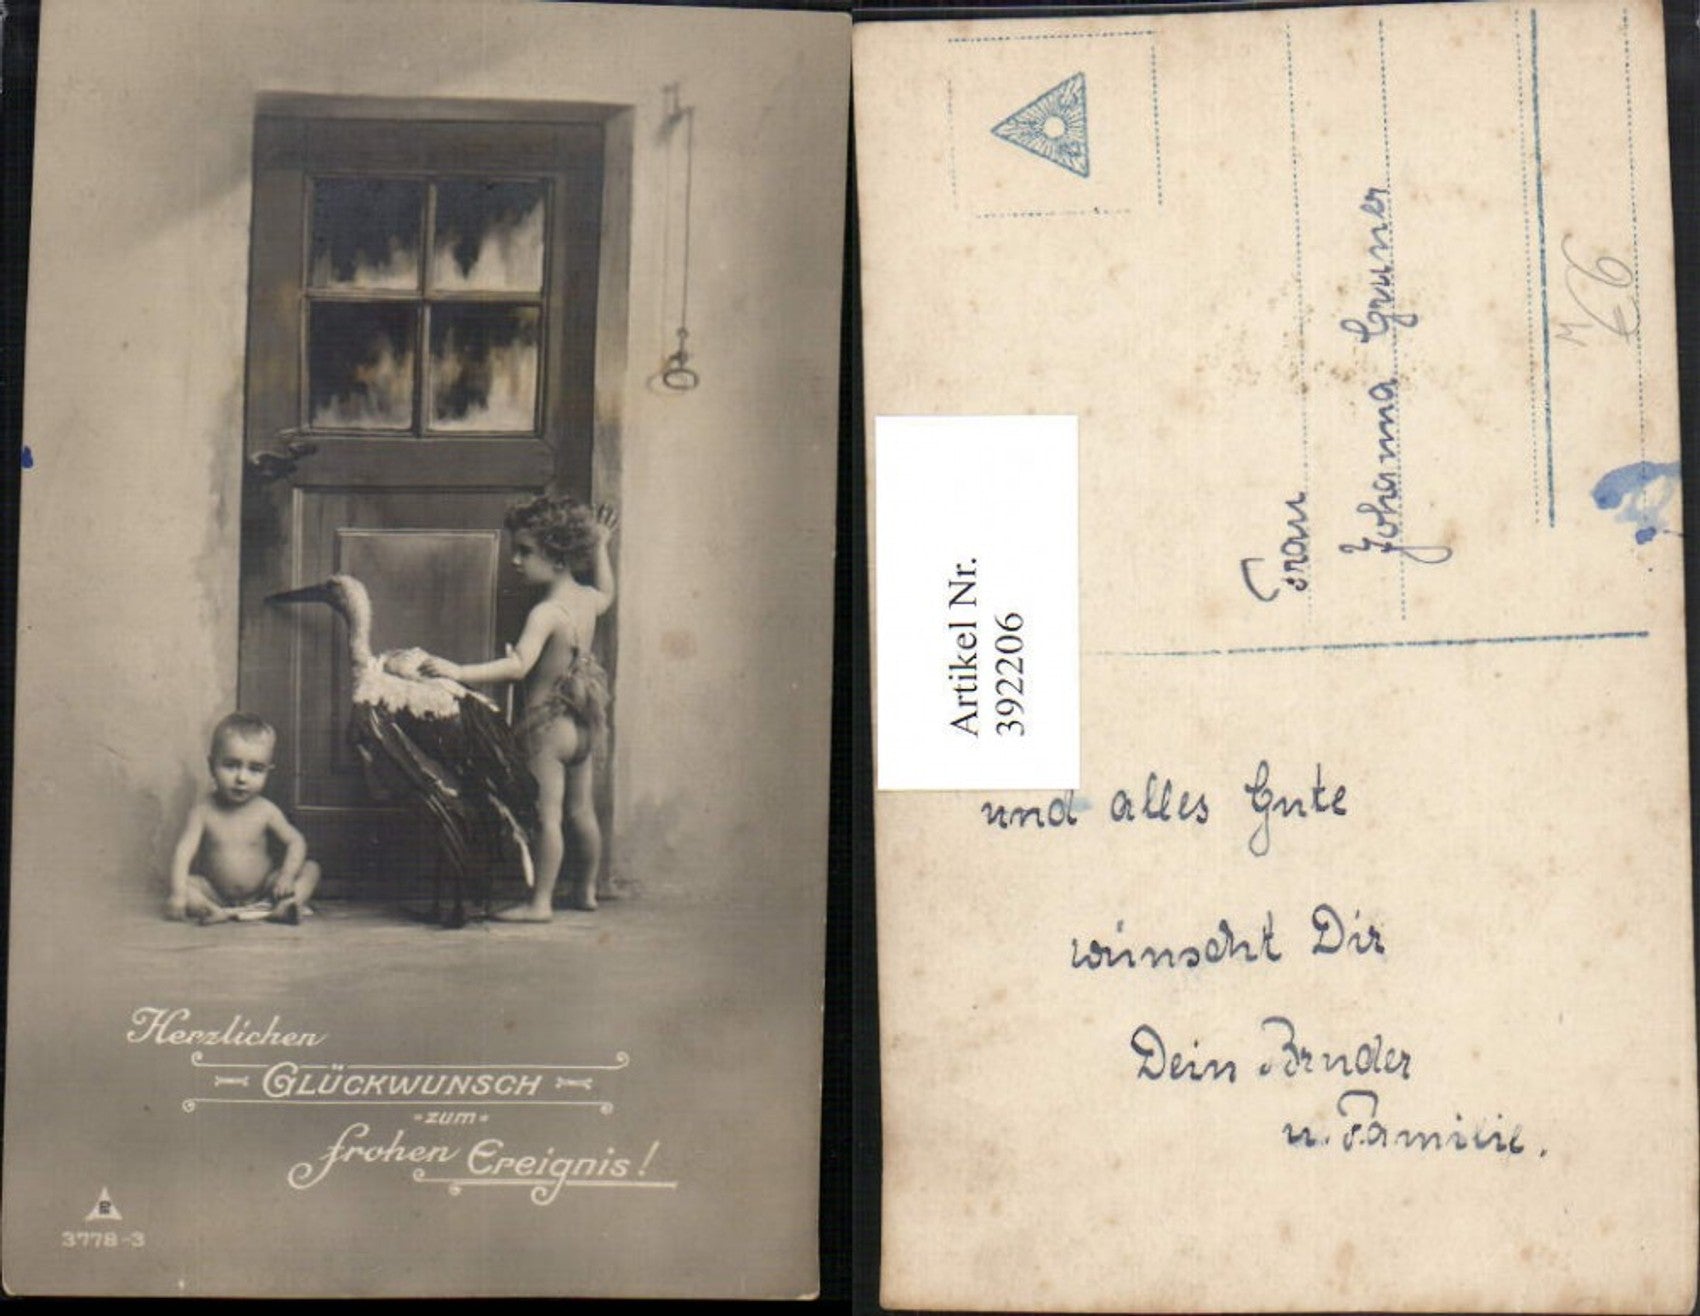 Herzlichen
GLÜCKWUNSCH
zum
frohen Ereignis!
3778-3
Artikel Nr.
392206
Frau
Johanna Gruner
M
€6
und alles Gute
wünscht Dir
Dein Bruder
u. Familie.